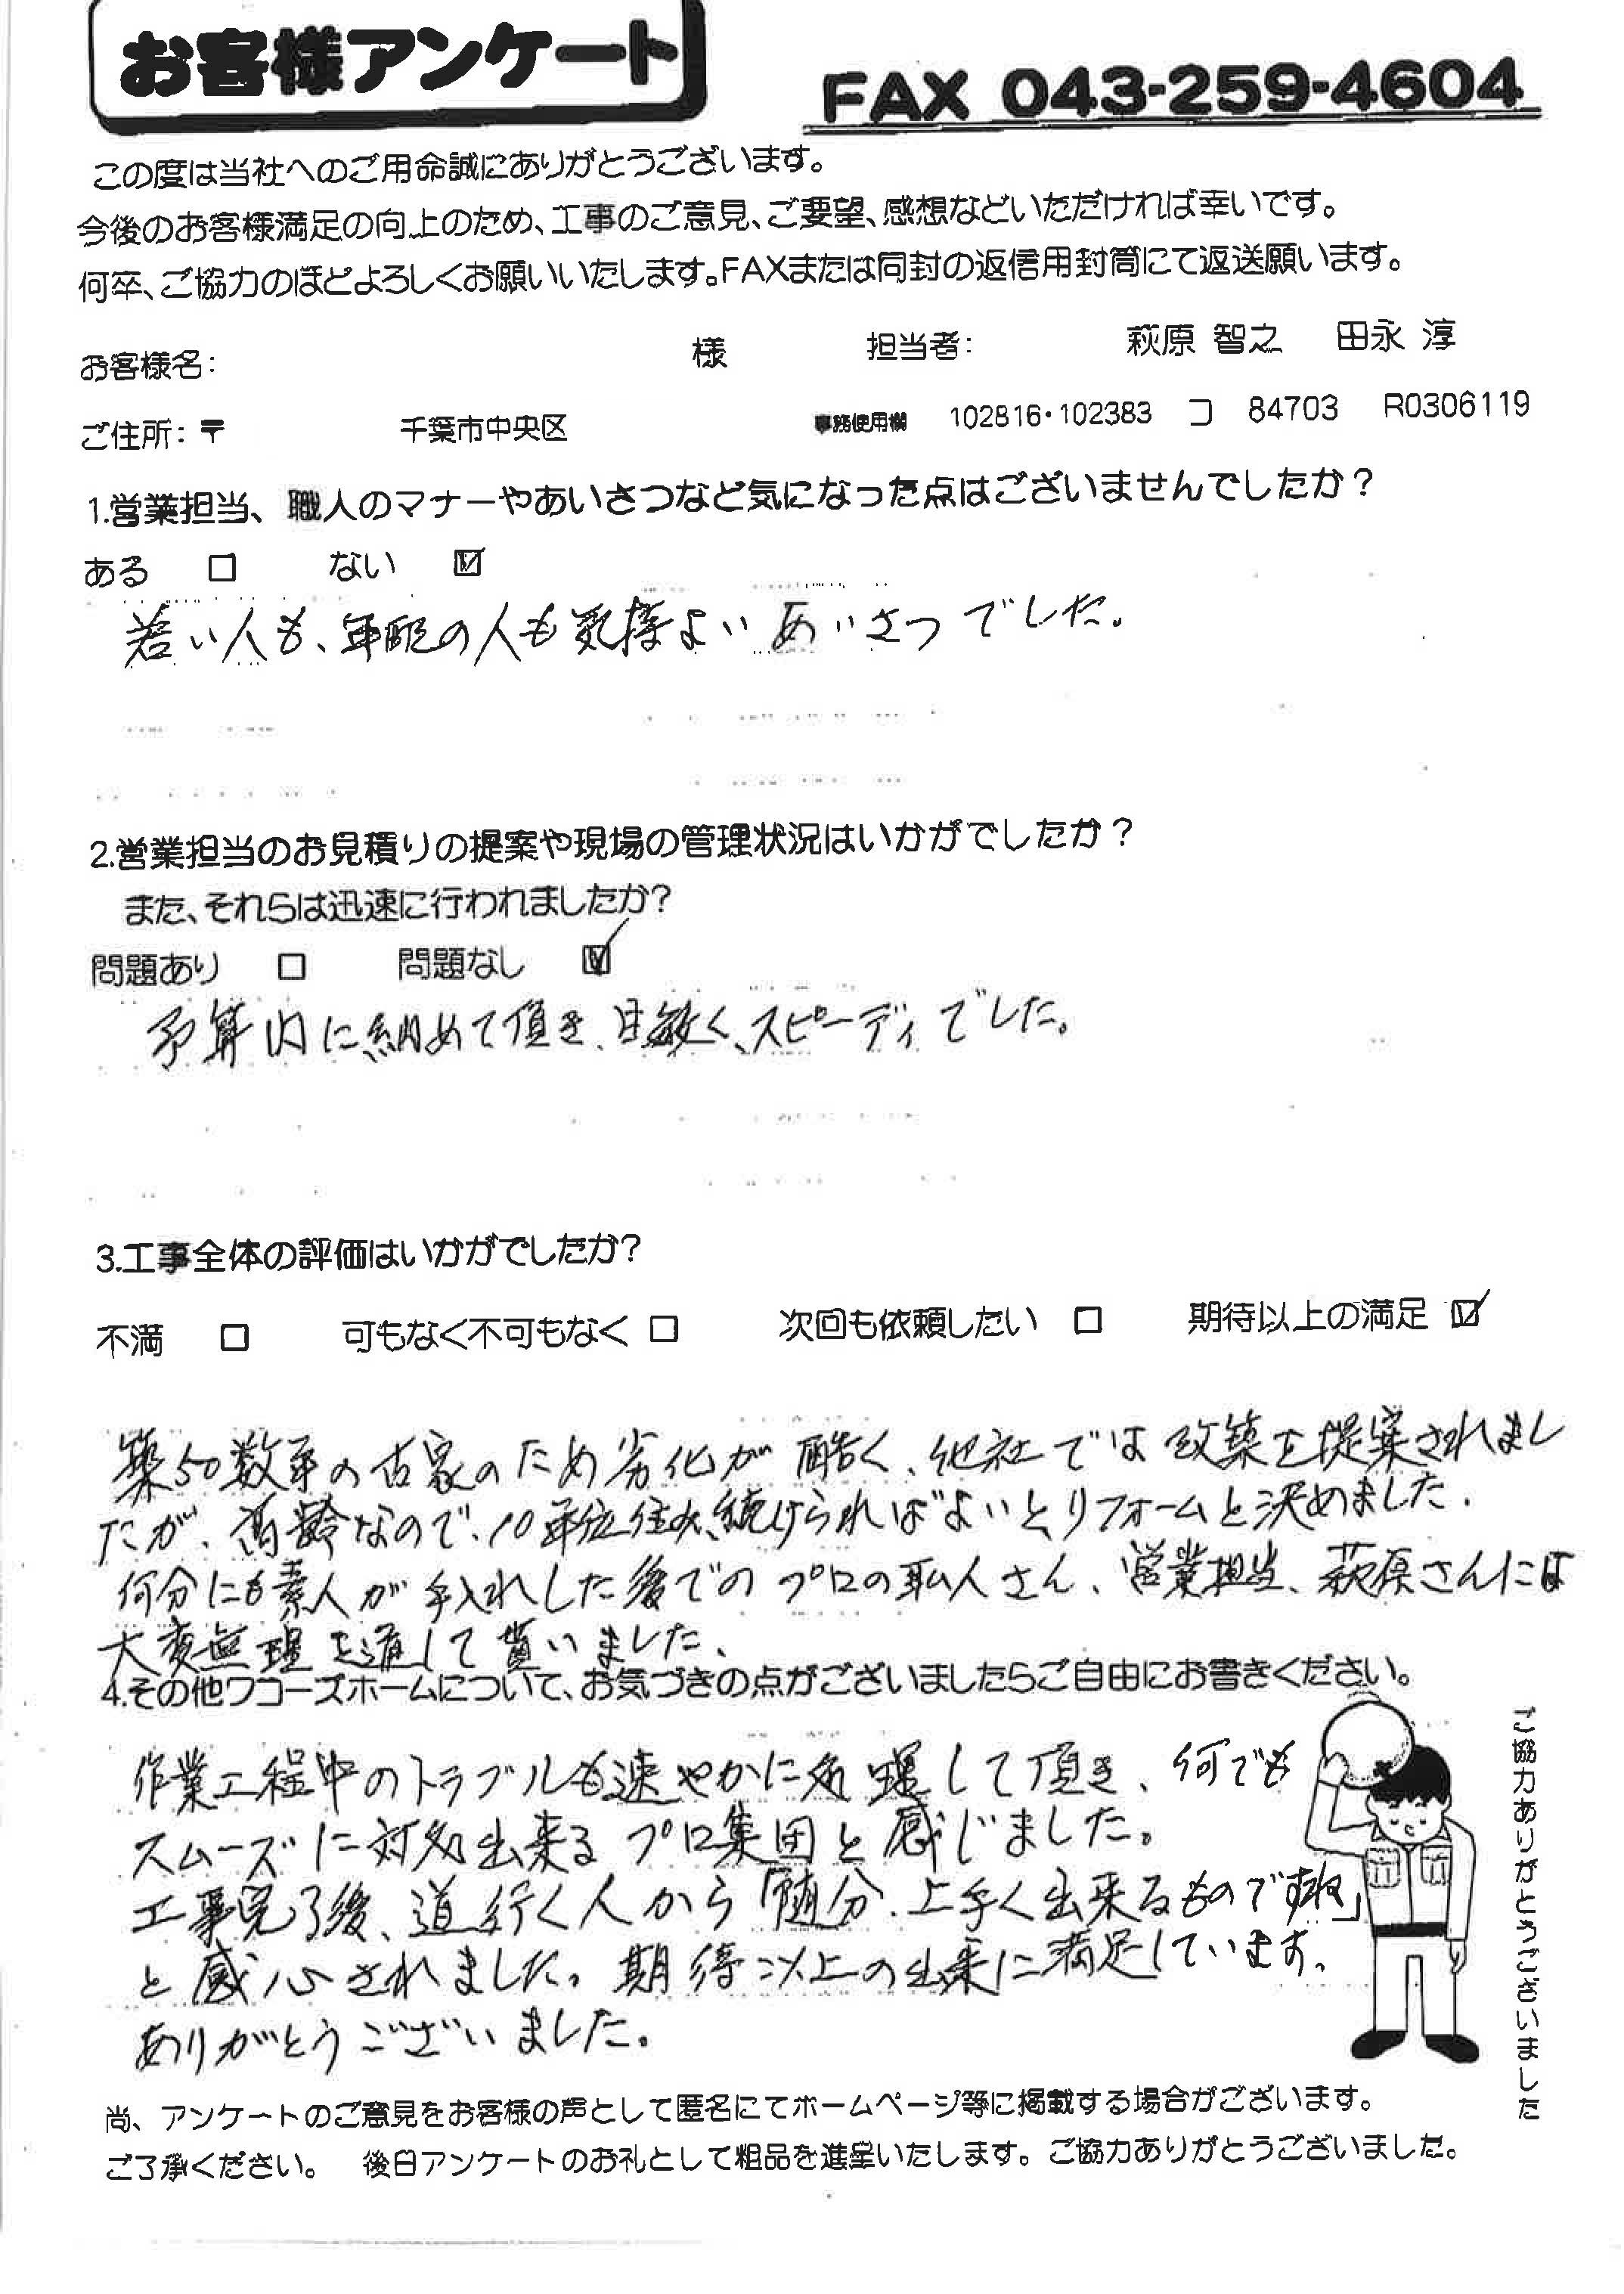 お客様アンケート
FAX 043-259-4604
この度は当社へのご用命誠にありがとうございます。
今後のお客様満足の向上のため、工事のご意見、ご要望、感想などいただければ幸いです。
何卒、ご協力のほどよろしくお願いいたします。FAXまたは同封の返信用封筒にて返送願います。
お客様名: 様 担当者: 萩原 智之 田永 淳
ご住所:〒 千葉市中央区 事務使用欄 102816・102383 コ 84703 R0306119
1.営業担当、職人のマナーやあいさつなど気になった点はございませんでしたか?
ある □ ない ☑
若い人も、年配の人も気持よいあいさつでした。
2.営業担当のお見積りの提案や現場の管理状況はいかがでしたか?
また、それらは迅速に行われましたか?
問題あり □ 問題なし ☑
予算内に納めて頂き、目敏く、スピーディでした。
3.工事全体の評価はいかがでしたか?
不満 □ 可もなく不可もなく □ 次回も依頼したい □ 期待以上の満足 ☑
築50数年の古家のため劣化が酷く、他社では改築を提案されまし
たが、高齢なので、10年位住み続けられればよいとリフォームと決めました。
何分にも素人が手入れした後でのプロの職人さん、営業担当、萩原さんには
大変無理を通して貰いました、
4.その他ワコーズホームについて、お気づきの点がございましたらご自由にお書きください。
作業工程中のトラブルも速やかに処理して頂き、何でも
スムーズに対処出来るプロ集団と感じました。
工事完了後、道行く人から「随分、上手く出来るものですね」
と感心されました。期待以上の出来に満足しています。
ありがとうございました。
ご協力ありがとうございました
尚、アンケートのご意見をお客様の声として匿名にてホームページ等に掲載する場合がございます。
ご了承ください。 後日アンケートのお礼として粗品を進呈いたします。ご協力ありがとうございました。